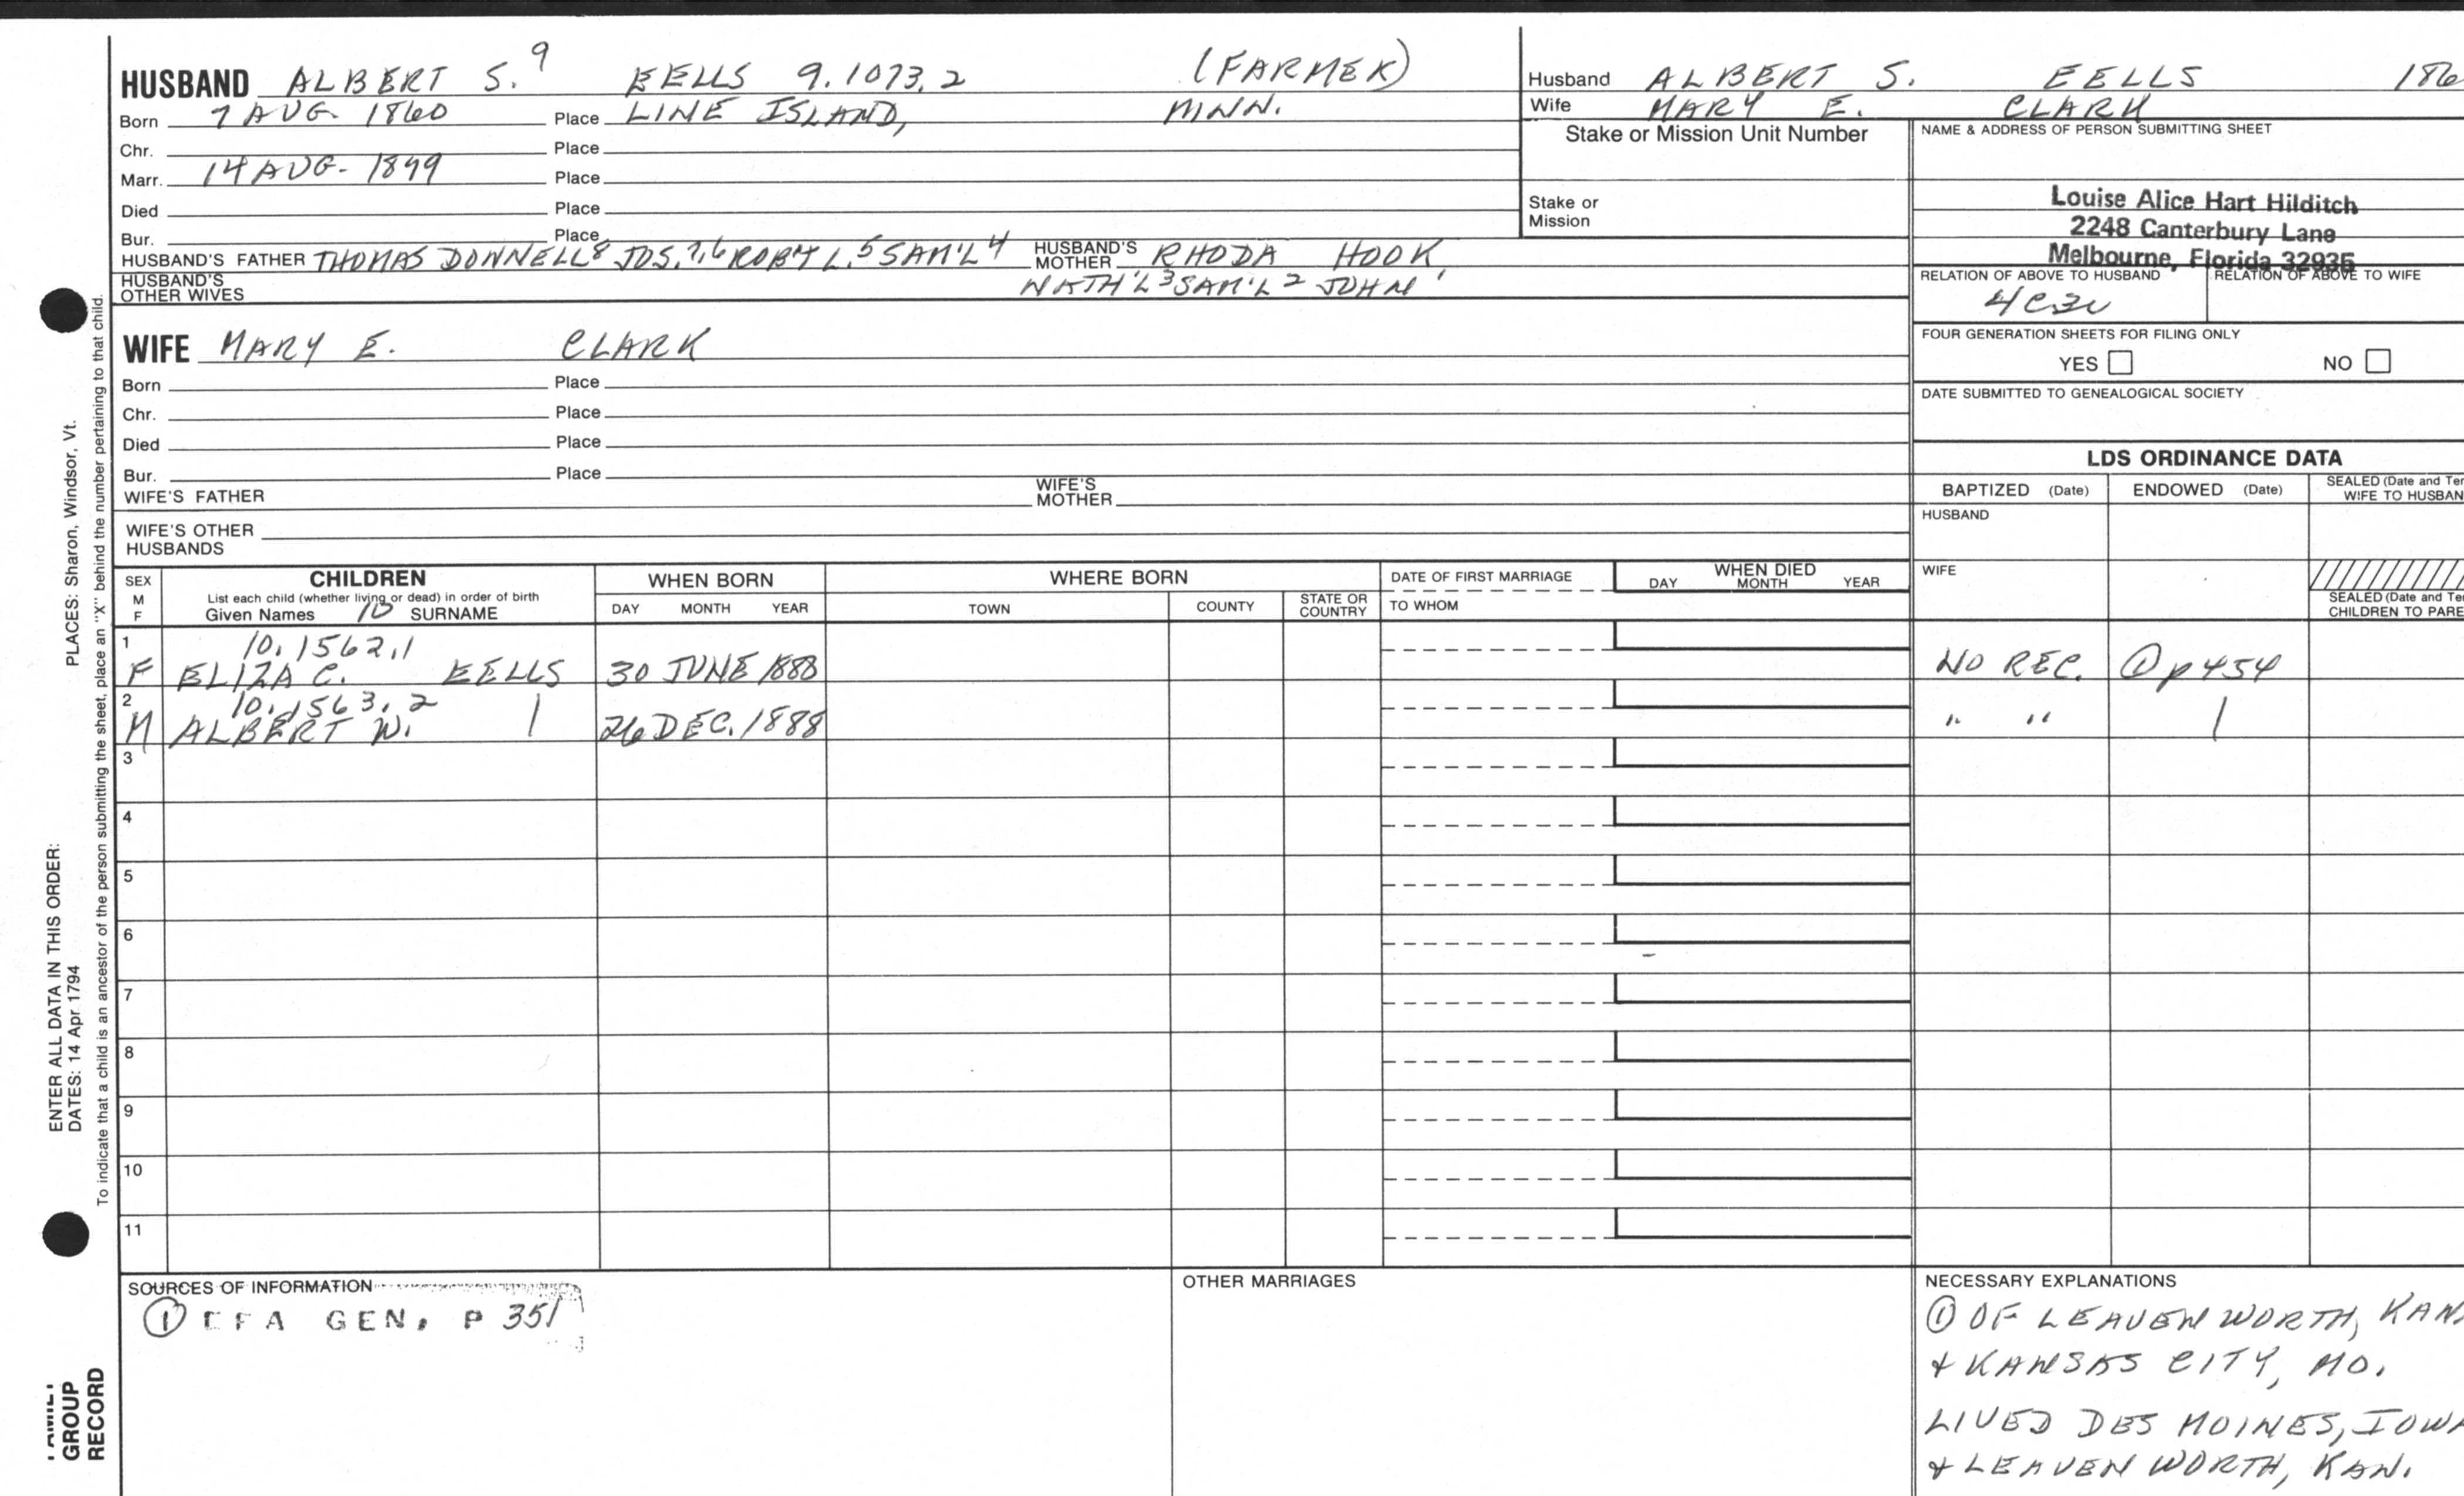 HUSBAND ALBERT S.⁹ EELLS 9.1073.2 (FARMER)
Born 7 AUG. 1860 Place LINE ISLAND, MINN.
Chr. Place
Marr. 14 AUG. 1899 Place
Died Place
Bur. Place
HUSBAND'S FATHER THOMAS DONNELL⁸ JOS.⁷,⁶ ROB'T L.⁵ SAM'L⁴ HUSBAND'S MOTHER RHODA HOOK
HUSBAND'S OTHER WIVES NATH'L³ SAM'L² JOHN¹
WIFE MARY E. CLARK
Born Place
Chr. Place
Died Place
Bur. Place
WIFE'S FATHER WIFE'S MOTHER
WIFE'S OTHER HUSBANDS
Husband ALBERT S. EELLS 186
Wife MARY E. CLARK
Stake or Mission Unit Number
Stake or Mission
NAME & ADDRESS OF PERSON SUBMITTING SHEET
Louise Alice Hart Hilditch
2248 Canterbury Lane
Melbourne, Florida 32935
RELATION OF ABOVE TO HUSBAND RELATION OF ABOVE TO WIFE
FOUR GENERATION SHEETS FOR FILING ONLY
YES NO
DATE SUBMITTED TO GENEALOGICAL SOCIETY
LDS ORDINANCE DATA
BAPTIZED (Date) ENDOWED (Date) SEALED (Date and Tem
WIFE TO HUSBAN
HUSBAND
WIFE
SEALED (Date and Te
CHILDREN TO PARE
SEX M F
CHILDREN
List each child (whether living or dead) in order of birth
Given Names 10 SURNAME
WHEN BORN
DAY MONTH YEAR
WHERE BORN
TOWN COUNTY STATE OR COUNTRY
DATE OF FIRST MARRIAGE
TO WHOM
WHEN DIED
DAY MONTH YEAR
1 10.1562.1
F ELIZA C. EELLS 30 JUNE 1888 NO REC. ① p 454
2 10.1563.2
M ALBERT W. | 26 DEC. 1888 " " |
3
4
5
6
7
8
9
10
11
SOURCES OF INFORMATION
① EFA GEN. P 351
OTHER MARRIAGES
NECESSARY EXPLANATIONS
① OF LEAVENWORTH, KAN.
+ KANSAS CITY, MO.
LIVED DES MOINES, IOWA
+ LEAVENWORTH, KAN.
PLACES: Sharon, Windsor, Vt.
ENTER ALL DATA IN THIS ORDER:
DATES: 14 Apr 1794
To indicate that a child is an ancestor of the person submitting the sheet, place an "X" behind the number pertaining to that child.
FAMILY
GROUP
RECORD